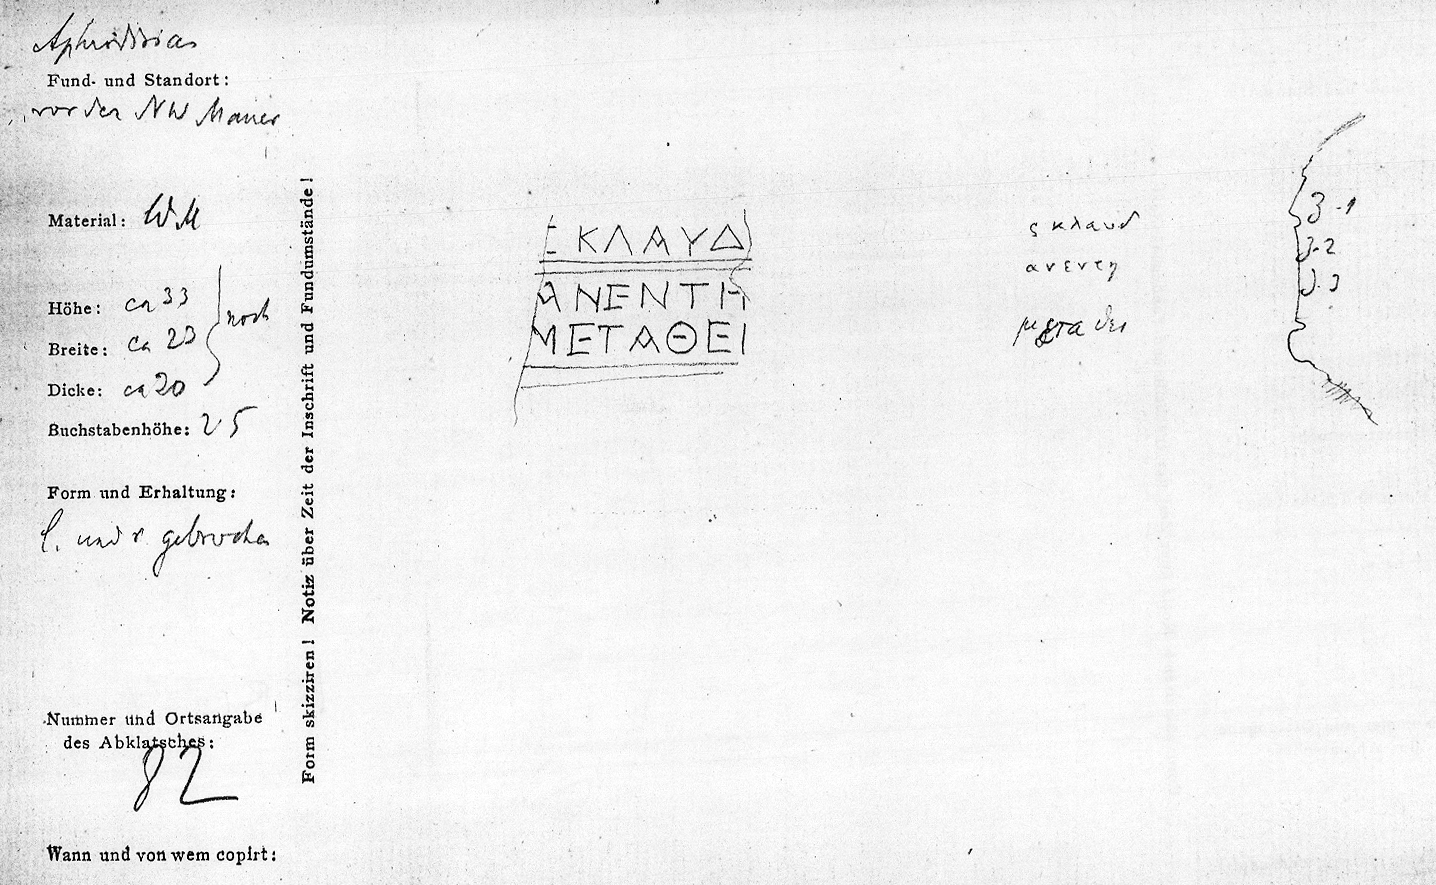 Aphrodisias
Fund- und Standort:
vor der NW Mauer
Material: WM
Höhe: ca 33
Breite: ca 23
Dicke: ca 20
noch
Buchstabenhöhe: 25
Form und Erhaltung:
l. und r gebrochen
Nummer und Ortsangabe
des Abklatsches:
82
Wann und von wem copirt:
Form skizziren! Notiz über Zeit der Inschrift und Fundumstände!
ΕΚΛΑΥΔ
ΑΝΕΝΤΗ
ΜΕΤΑΘΕΙ
ς κλαυδ
ανεντη
μετα θει
3-1
3-2
3-3